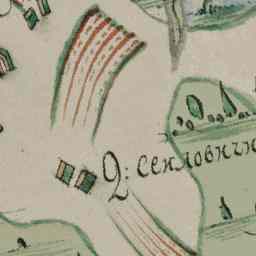 Д: Сеиловичи